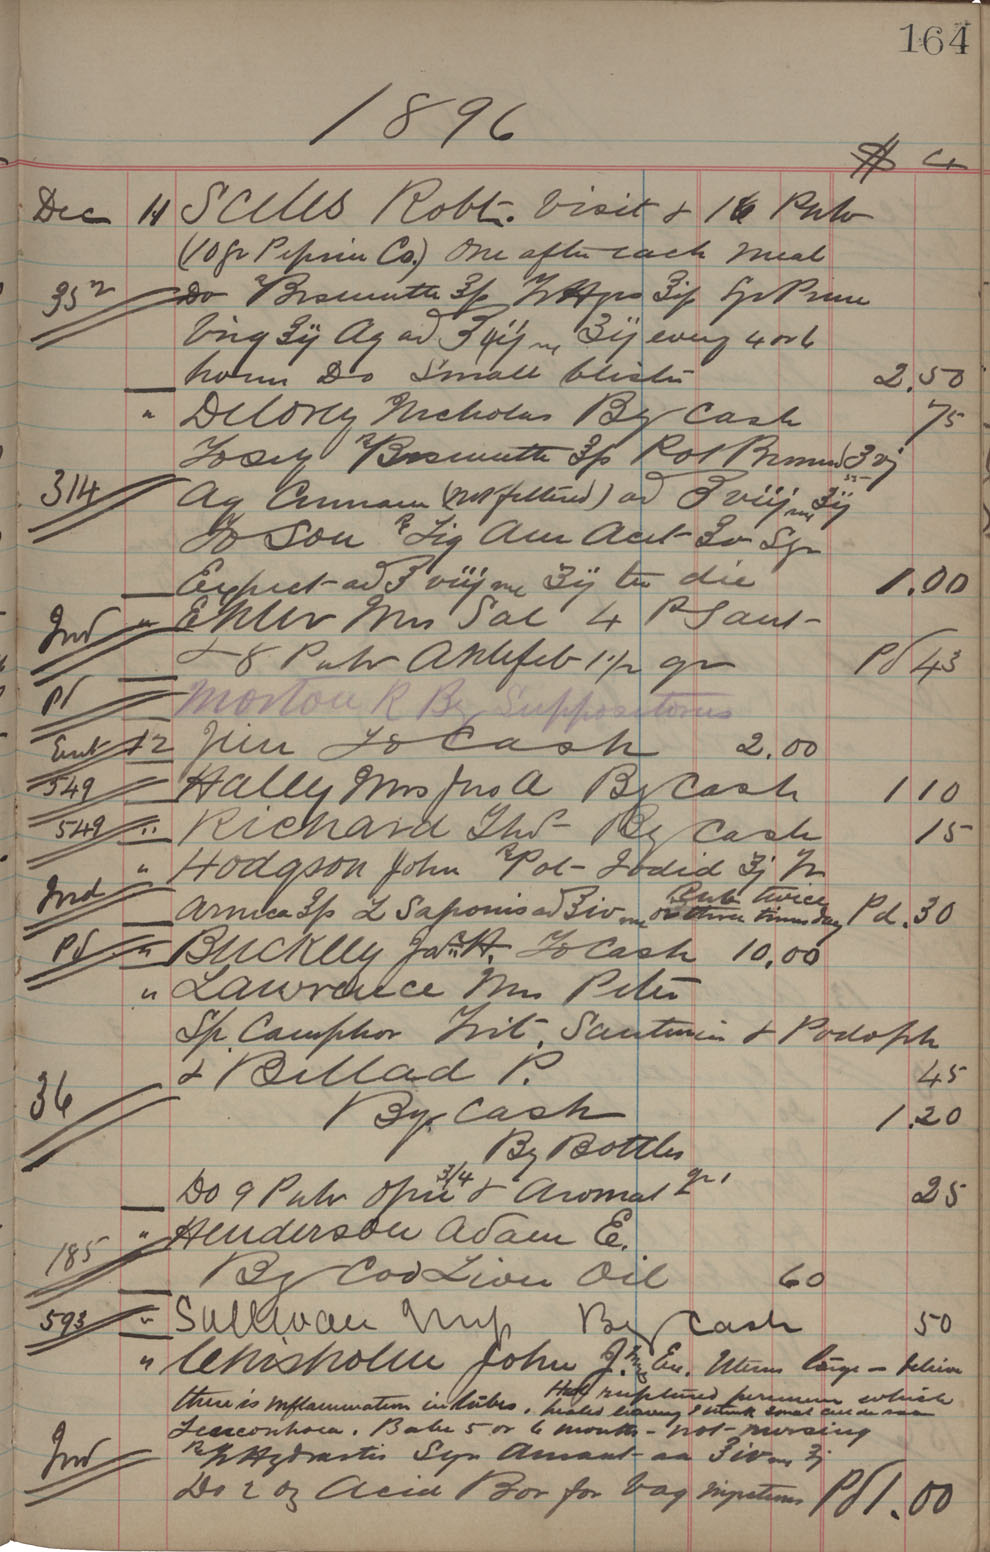 164
1896
$ Ct
Dec 11 Scllis Robt. Visit & 16 Pulv
(10 gr Pepsin Co.) One after each meal
352 Do ℞ Bismuth ʒſs Syr Prun
Virg ʒij Aq ad ℥ ʒij every 4 or 6
hours Do Small blister 2.50
" Delorey Nicholas By Cash 75
Bismuth ʒſs Pot Bromid ʒvj
314 Aq Cinnam (not filtered) ad ℥viij ʒij
To Son ℞ Liq Am Acet ʒv Syr
Expect ad ℥viij ʒij ter die 1.00
Ind " Ehler Mrs Sal 4 P Sant
& 8 Pulv Antifeb 1½ gr Pd 43
Pd Morton R By Suppositories
Ent 12 Jim To Cash 2.00
549 Hally Mrs Jno A By Cash 1 10
549 " Richard Thos By Cash 15
" Hodgson John ℞ Pot Iodid ʒj Tr
Ind Arnica ʒſs L Saponis ad ℥iv Rub twice or three times day Pd .30
Pd " Buckley Jas. H. To Cash 10.00
" Lawrence Mrs Peter
Sp. Camphor Trit. Santonin & Podoph
& Bellad P. 45
36 By Cash 1.20
By Bottles
Do 9 Pulv Opii 3/4 & Aromat gr 1 25
" Henderson Adam E.
185 By Cod Liver Oil 60
593 " Sullivan By Cash 50
" Chisholm John J. Ex. Uterus large – believe
there is inflammation in tubes. Had ruptured perineum which
healed leaving
Leucorrhoea. Babe 5 or 6 months – not nursing
Ind ℞ Hydrastis Syr Aurant aa ℥iv ʒj
Do 2 oz Acid Bor for Vag injections Pd 1.00